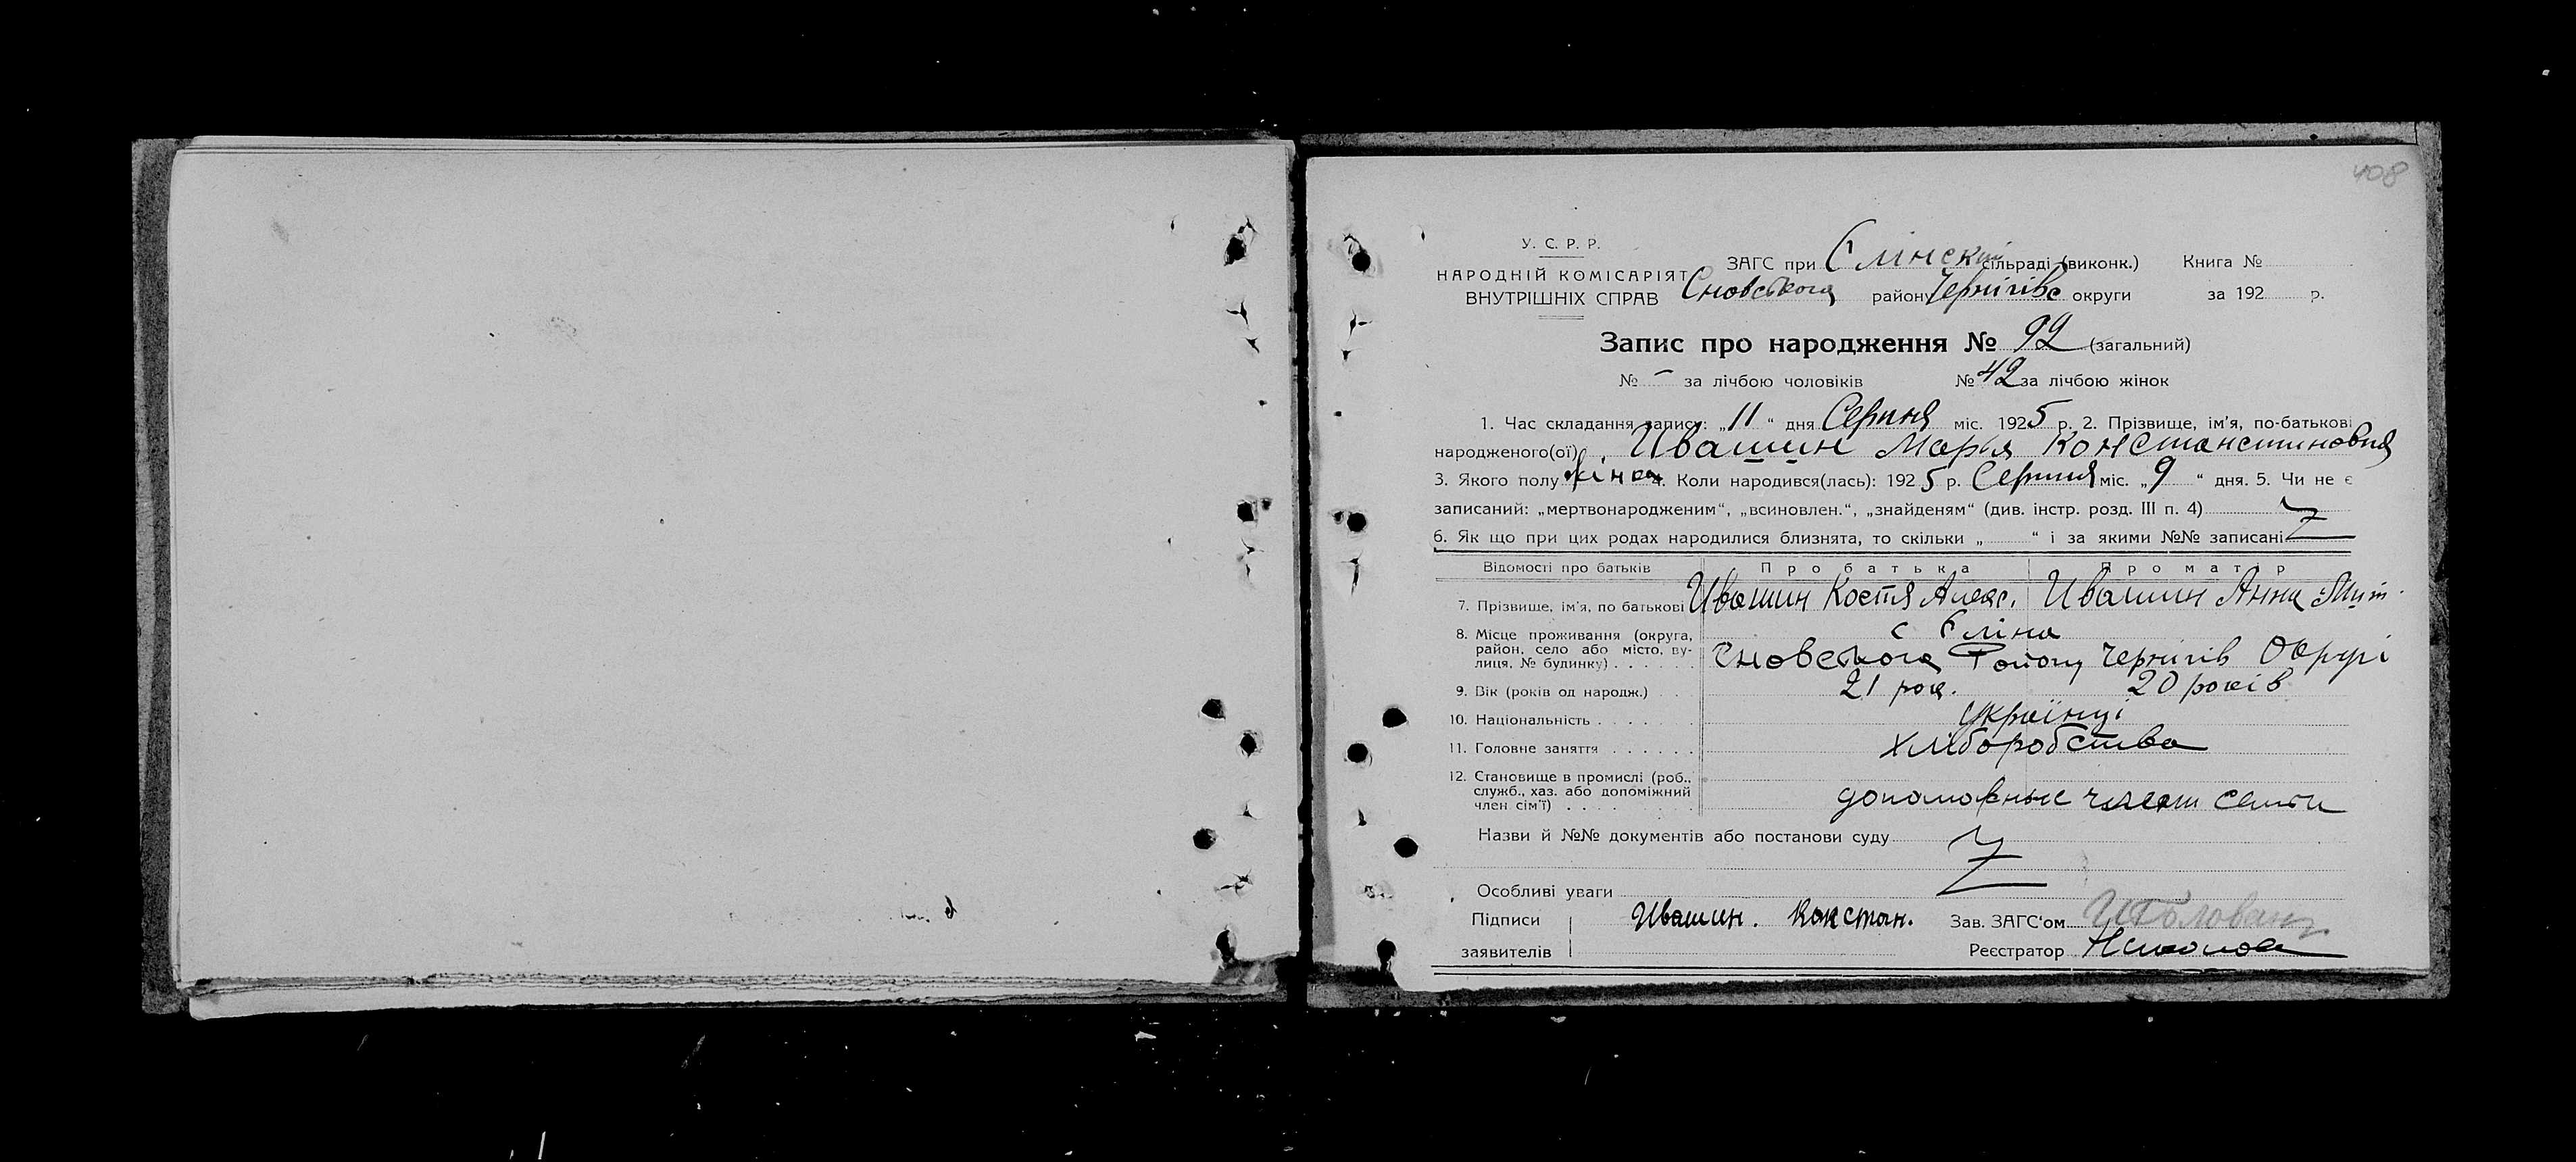 408
У. С. Р. Р.
НАРОДНІЙ КОМІСАРІЯТ
ВНУТРІШНІХ СПРАВ
ЗАГС при Єлінскій сільраді (виконк.) Книга №
Сновського району Чернігівс округи за 192 р.
Запис про народження № 92 (загальний)
№ – за лічбою чоловіків № 42 за лічбою жінок
1. Час складання запису: „11“ дня Серпня міс. 1925 р. 2. Прізвище, ім'я, по-батькові
народженого(ої) Ивашин Марія Константиновна
3. Якого полу жінка 4. Коли народився(лась): 1925 р. Серпня міс. „9“ дня. 5. Чи не є
записаний: „мертвонародженим“, „всиновлен.“, „знайденям“ (див. інстр. розд. III п. 4)
6. Як що при цих родах народилися близнята, то скільки „ “ і за якими №№ записані
Відомості про батьків Про батька Про матір
7. Прізвище, ім'я, по батькові Ивашин Костя Алекс. Ивашин Анна Мит.
8. Місце проживання (округа, район, село або місто, вулиця, № будинку) с Єліна
Сновського Району Чернігів Округі
9. Вік (років од народж.) 21 рок. 20 років
10. Національність українці
11. Головне заняття хліборобства
12. Становище в промислі (роб., служб., хаз. або допоміжний член сім'ї)
Назви й №№ документів або постанови суду
Особливі уваги
Підписи Ивашин. Констан. Зав. ЗАГС'ом
заявителів Реєстратор